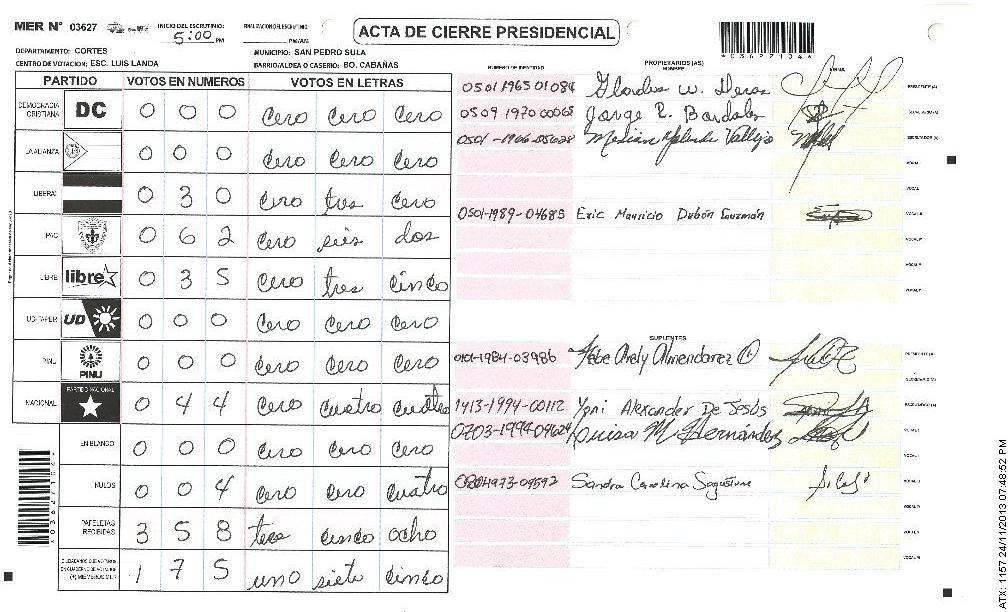 MER N° 03627
INICIO DEL ESCRUTINIO: 5:00 PM
FINALIZACION DEL ESCRUTINIO: PM/AM
ACTA DE CIERRE PRESIDENCIAL
DEPARTAMENTO: CORTES
MUNICIPIO: SAN PEDRO SULA
CENTRO DE VOTACION: ESC. LUIS LANDA
BARRIO/ALDEA O CASERIO: BO. CABAÑAS
PARTIDO VOTOS EN NUMEROS VOTOS EN LETRAS
DEMOCRACIA CRISTIANA DC 0 0 0 Cero Cero Cero
LA ALIANZA 0 0 0 Cero Cero Cero
LIBERAL 0 3 0 Cero tres Cero
PAC 0 6 2 Cero seis dos
LIBRE libre 0 3 5 Cero tres Cinco
UD-FAPER UD 0 0 0 Cero Cero Cero
PINU PINU 0 0 0 Cero Cero Cero
NACIONAL PARTIDO NACIONAL 0 4 4 Cero Cuatro Cuatro
EN BLANCO 0 0 0 Cero Cero Cero
NULOS 0 0 4 Cero Cero Cuatro
PAPELETAS RECIBIDAS 3 5 8 tres cinco ocho
CIUDADANOS QUE VOTARON EN CUADERNO DE VOTACION (+) MIEMBROS MER 1 7 5 uno siete cinco
NUMERO DE IDENTIDAD PROPIETARIOS (AS) NOMBRE FIRMA
0501 1965 01084 Gloadis W. Deras PRESIDENTE (A)
0509 1970 00068 Jorge L. Bardales SECRETARIO (A)
0501-1966-05628 Vallejo ESCRUTADOR (A)
VOCAL I
0501-1989-04685 Eric Mauricio Dubón Guzmán
SUPLENTES
0101-1984-03986 Hebe Arely Almendarez O PRESIDENTE (A)
SECRETARIO (A)
1413-1994-00112 Yoni Alexander De Jesús ESCRUTADOR (A)
0703-1994-04624 Luisa M. Hernández
Sandra Carolina Sagastume
ATX: 1157 24/11/2013 07:48:52 PM